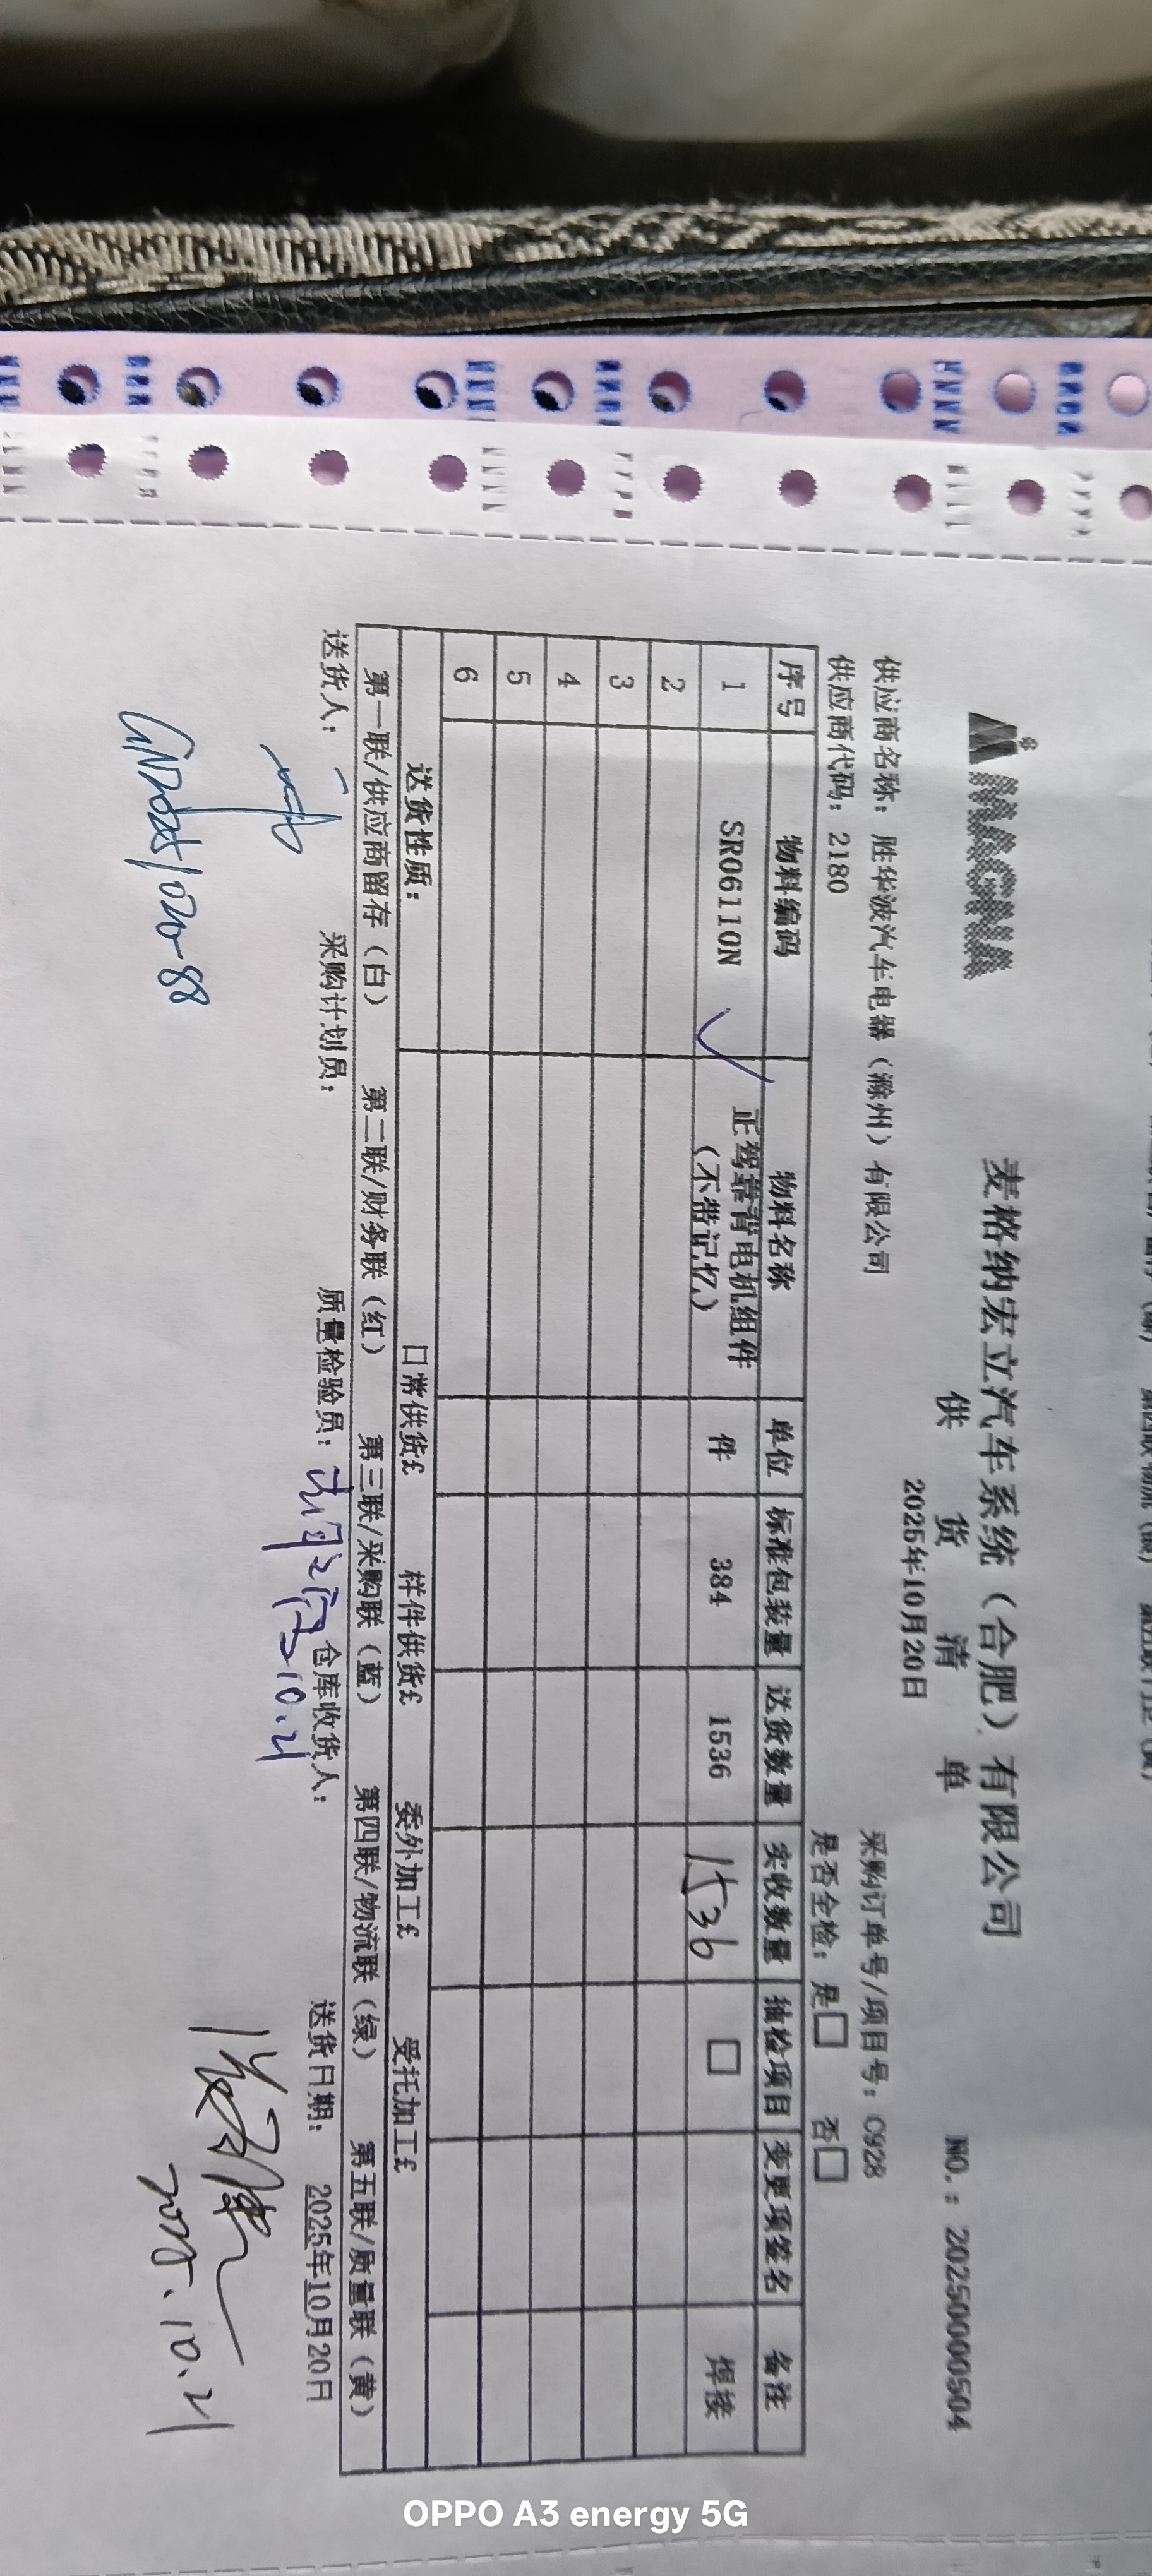 MAGNA
麦格纳宏立汽车系统（合肥）有限公司
供 货 清 单
NO.：20250000504
2025年10月20日
供应商名称：胜华波汽车电器（滁州）有限公司
采购订单号/项目号：C928
供应商代码：2180
是否全检：是□ 否□
序号 物料编码 物料名称 单位 标准包装量 送货数量 实收数量 抽检项目 变更项签名 备注
1 SR06110N 正驾靠背电机组件（不带记忆） 件 384 1536 1536 □ 焊接
2
3
4
5
6
送货性质： 日常供货£ 样件供货£ 委外加工£ 受托加工£
第一联/供应商留存（白） 第二联/财务联（红） 第三联/采购联（蓝） 第四联/物流联（绿） 第五联/质量联（黄）
送货人： 采购计划员： 质量检验员： 10.21 仓库收货人： 送货日期： 2025年10月20日
2025.10.21
OPPO A3 energy 5G